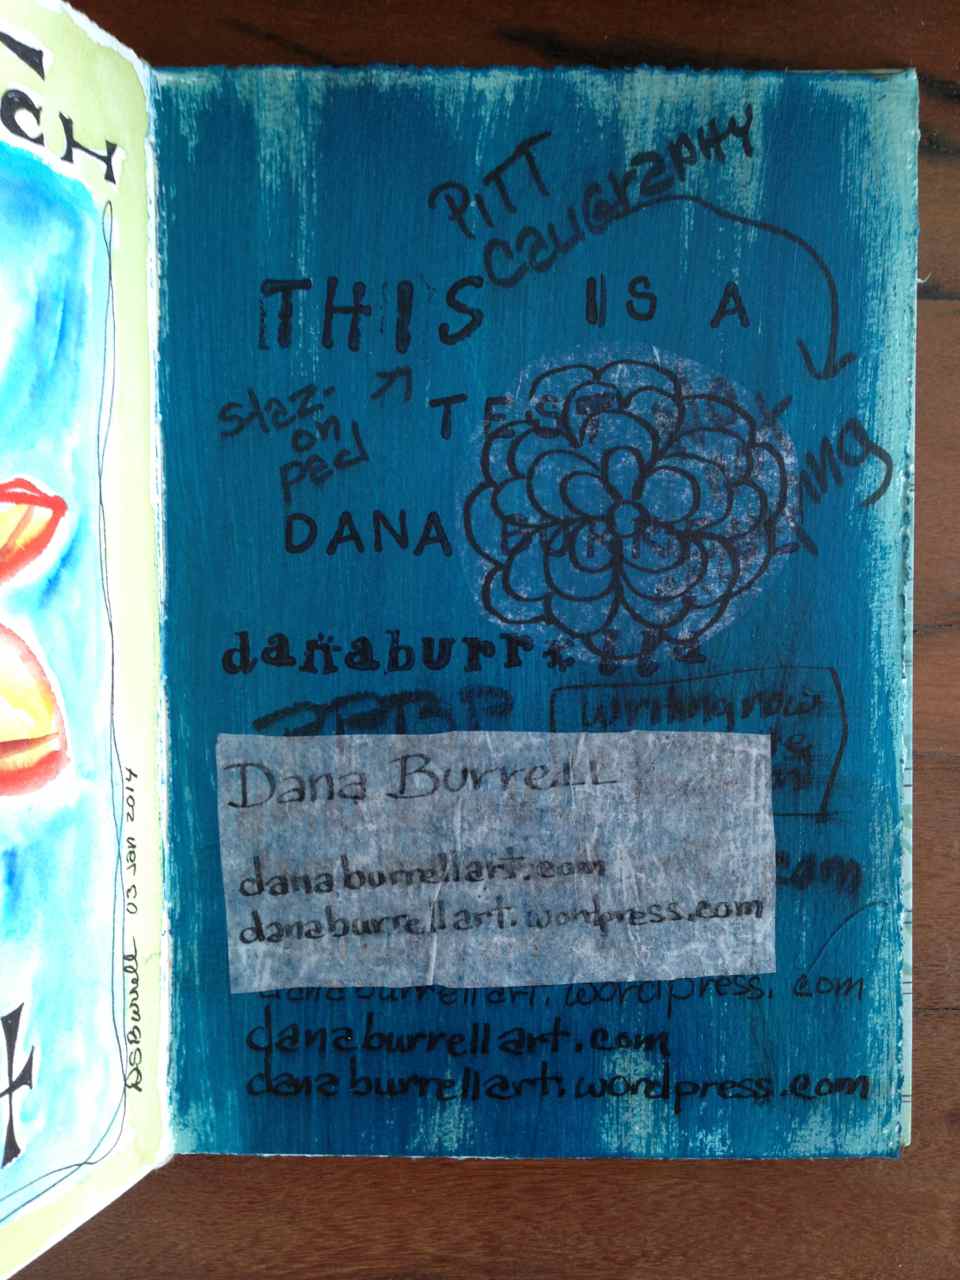 CH
DSBurrell 03 Jan 2014
PITT
CalliGraPHY
THIS IS A
Staz-
on
pad
TEST
DANA
danaburrell
Writing
Dana Burrell
danaburrellart.com
danaburrellart.wordpress.com
.com
danaburrellart.wordpress.com
danaburrellart.com
danaburrellart.wordpress.com